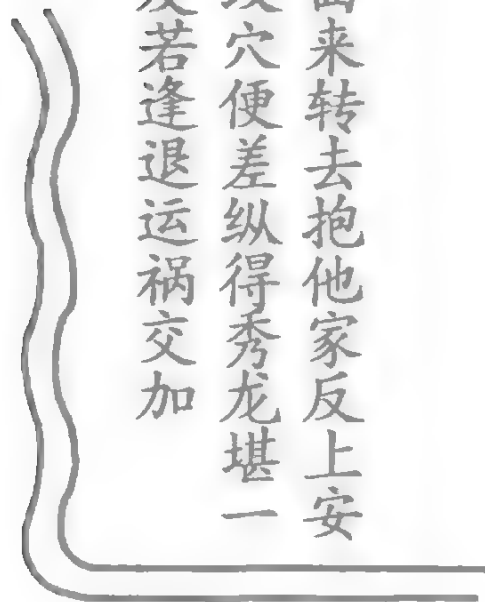 来转去抱他家反上安
穴便差纵得秀龙堪一
若逢退运祸交加